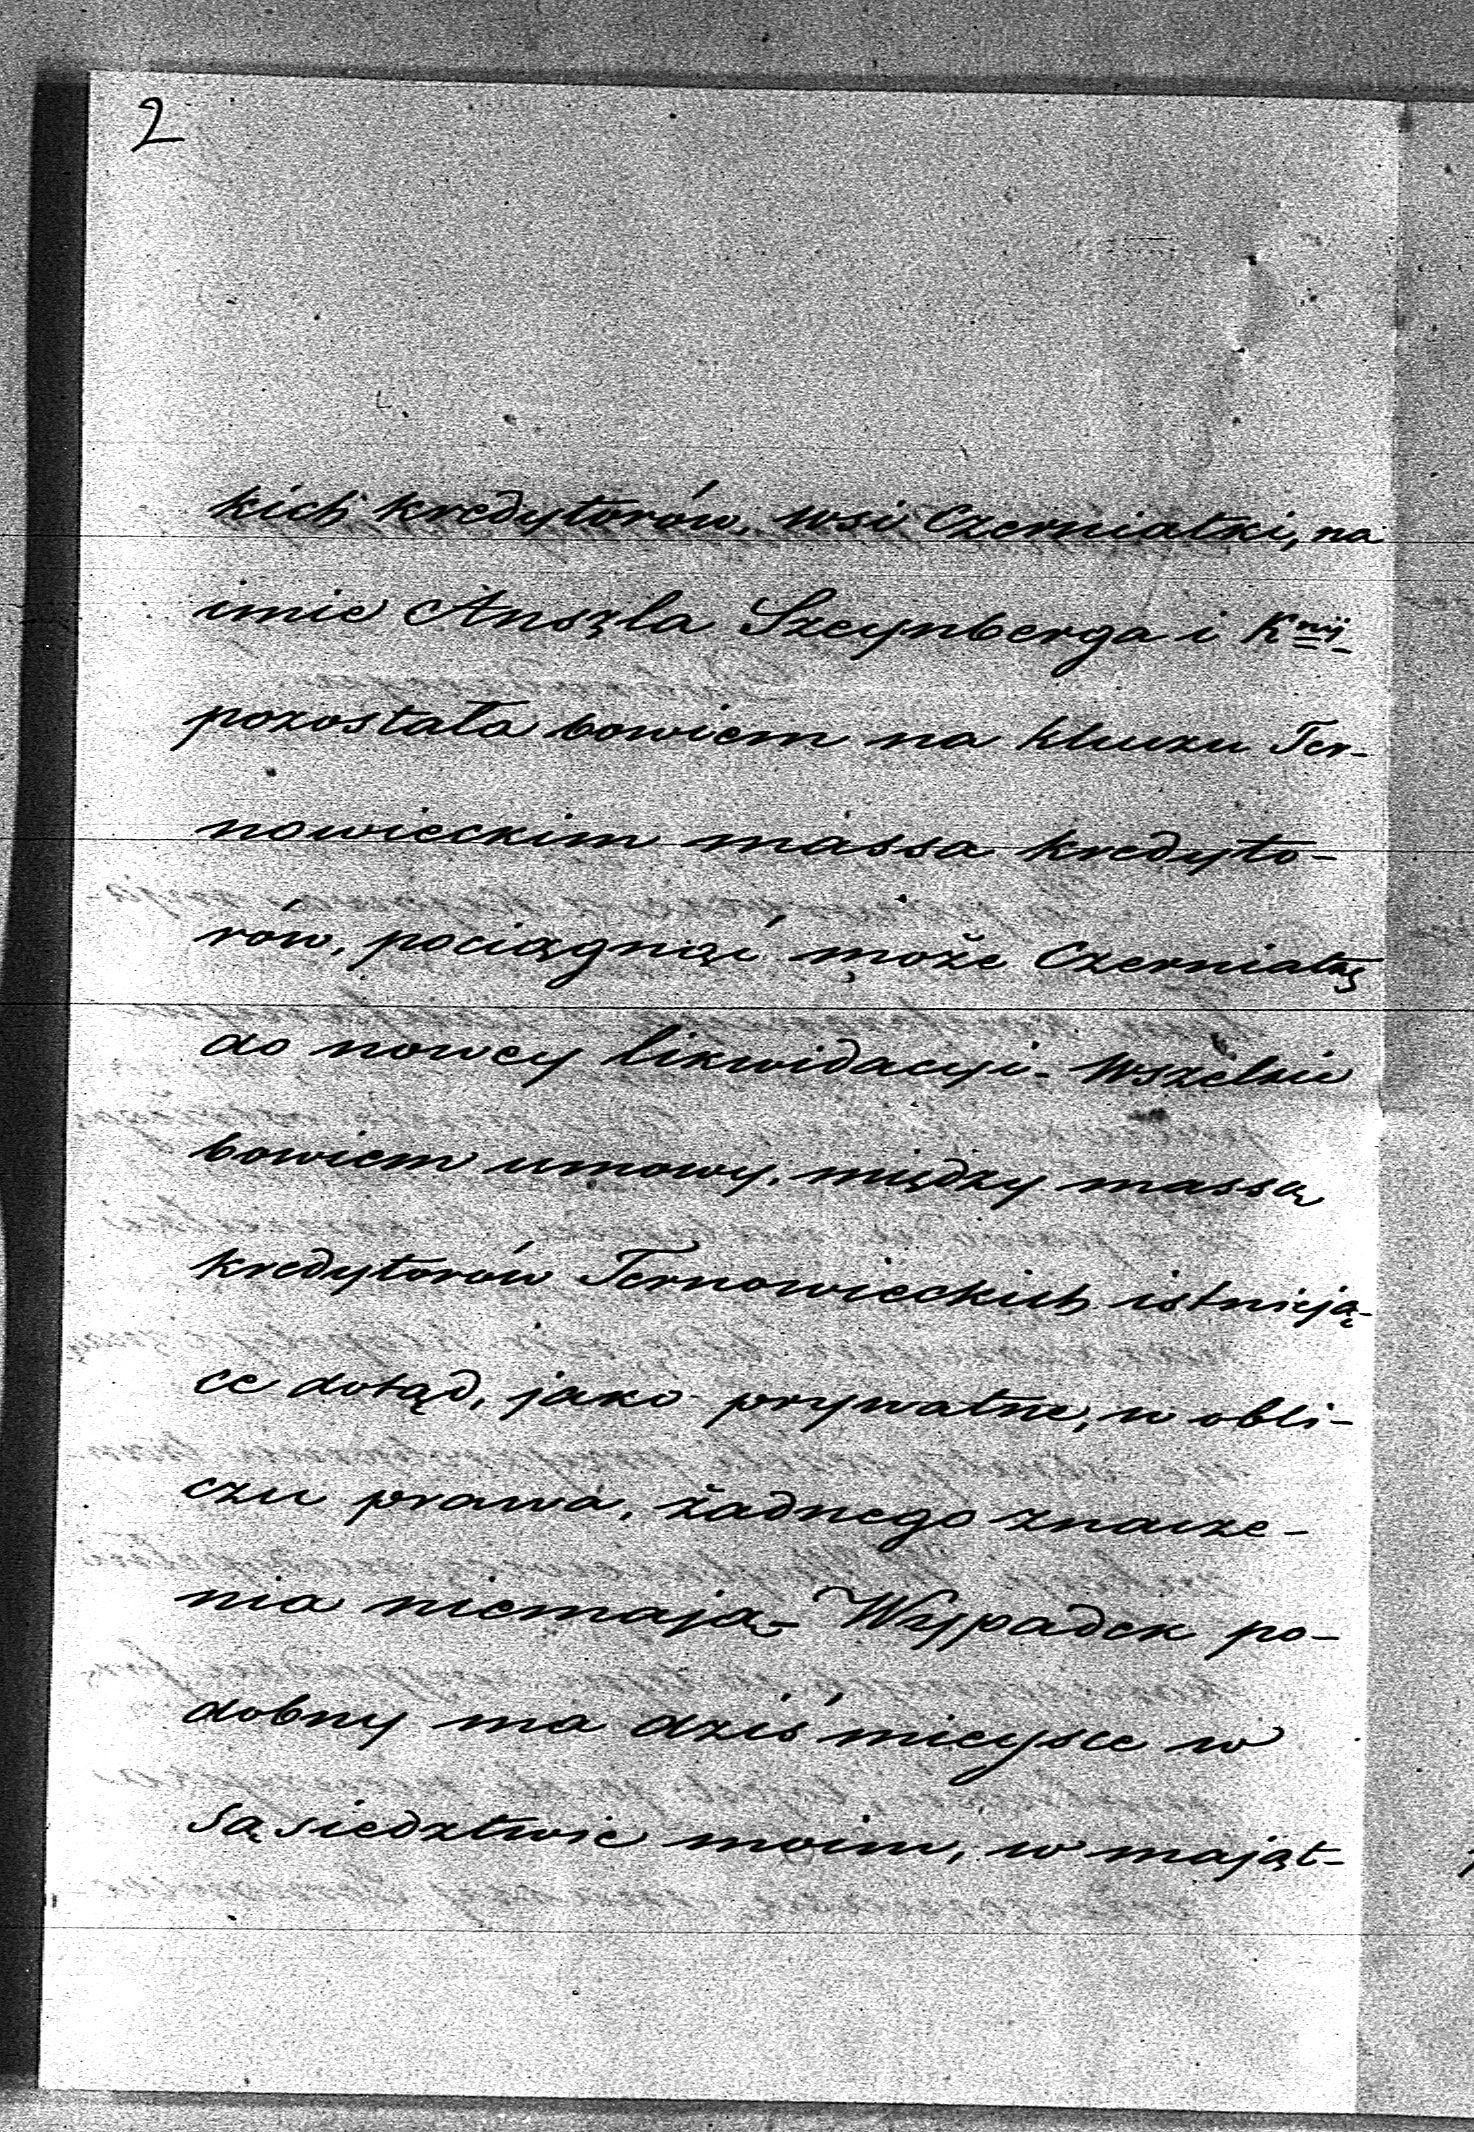 2
kich kredytorów, wsi Czerniatki, na
imie Anszla Szeynberga i K<sup>nij</sup>
pozostała bowiem na kluczu Ter-
nowieckim massa kredyto-
rów, pociągnąć może Czerniatkę
do nowey likwidacyi. Wszelkie
bowiem umowy, między massą
kredytorów Ternowieckich istnieją-
ce dotąd, jako prywatne, w obli-
czu prawa, żadnego znacze-
nia niemają. Wypadek po-
dobny ma dziś mieysce w
sąsiedztwie moim, w mająt-